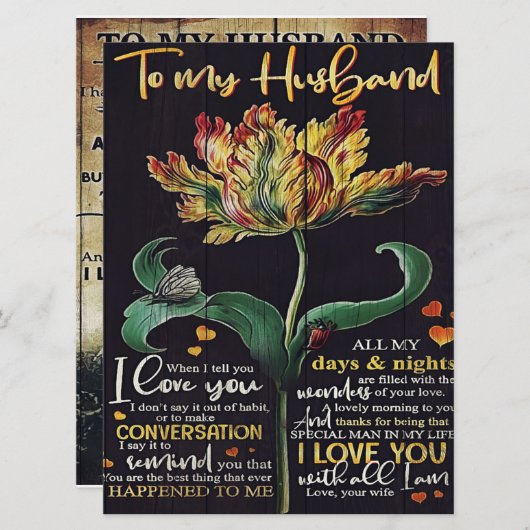 TO MY HUSBAND
I ha
A
BU
An
I L
To my Husband
When I tell you
I love you
I don't say it out of habit,
or to make
CONVERSATION
I say it to
remind you that
You are the best thing that ever
HAPPENED TO ME
ALL MY
days & nights
are filled with the
wonders of your love.
A lovely morning to you
And thanks for being that
SPECIAL MAN IN MY LIFE
I LOVE YOU
with all I am
Love, your wife